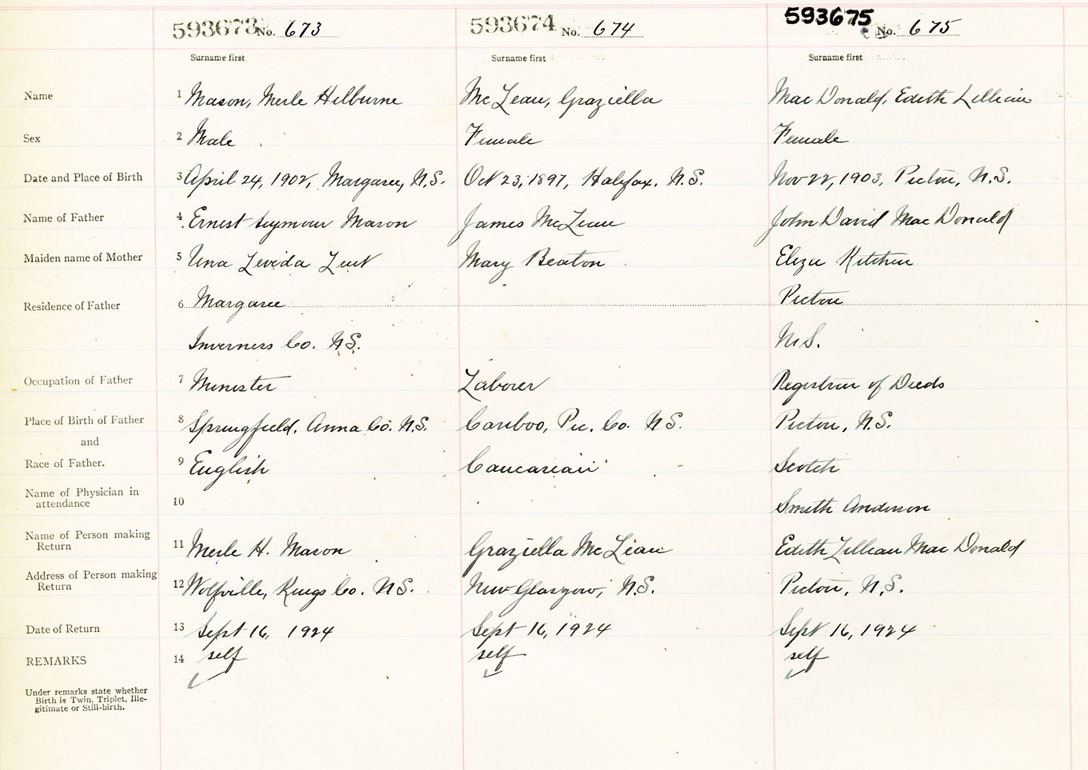 593673 No. 673 593674 No. 674 593675 No. 675
Surname first Surname first Surname first
Name 1 Mason, Merle Hilburne Mc Lean, Graziella Mac Donald, Edith Lillian
Sex 2 Male Female Female
Date and Place of Birth 3 April 24, 1902, Margaree, N.S. Oct 23, 1897, Halifax, N.S. Nov 22, 1903, Pictou, N.S.
Name of Father 4 Ernest Seymour Mason James McLean John David Mac Donald
Maiden name of Mother 5 Una Mary Beaton Eliza Kitchen
Residence of Father 6 Margaree Pictou
Inverness Co. N.S. N.S.
Occupation of Father 7 Minister Laborer Registrar of Deeds
Place of Birth of Father 8 Springfield, Anna Co. N.S. Cariboo, Pic. Co. N.S. Pictou, N.S.
and
Race of Father. 9 English Caucasian Scotch
Name of Physician in
attendance 10 Smith Anderson
Name of Person making
Return 11 Merle H. Mason Graziella McLean Edith Lillian Mac Donald
Address of Person making
Return 12 Wolfville, Kings Co. N.S. New Glasgow, N.S. Pictou, N.S.
Date of Return 13 Sept 16, 1924 Sept 16, 1924 Sept 16, 1924
REMARKS 14 self self self
Under remarks state whether
Birth is Twin, Triplet, Ille-
gitimate or Still-birth.